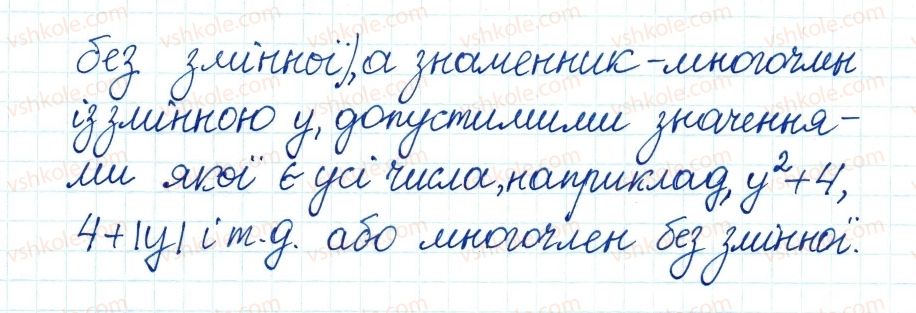 без змінної), а знаменник - многочлн
із змінною y, допустимими значення-
ми якої є усі числа, наприклад, y²+4,
4+|y| і т.д. або многочлен без змінної.